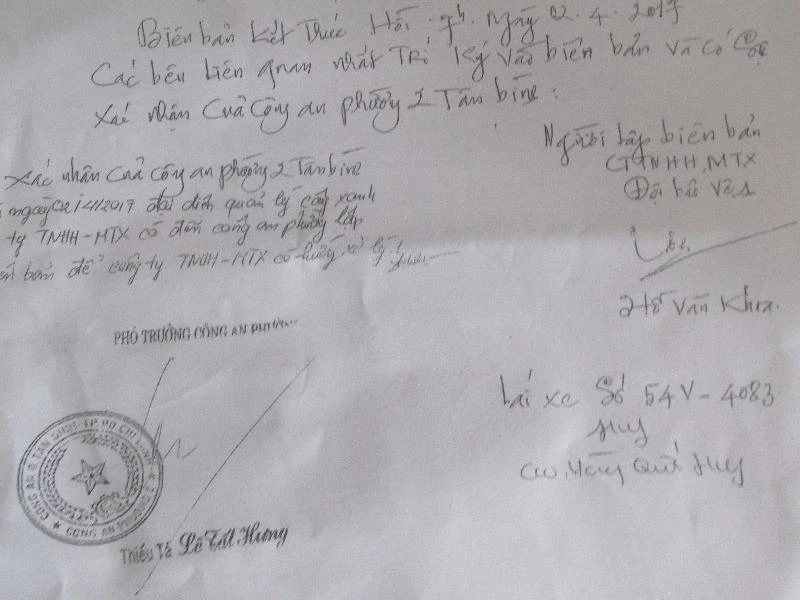 Biên bản kết thúc Hồi 9h. Ngày 02.4.2017
Các bên liên quan nhất Trí Ký vào biên bản Và có
Xác nhận Của Công an phường 2 Tân bình:
Người lập biên bản
CTTNHH, MTX
Đội bảo vệ 1
Hồ Văn Khoa.
Xác nhân Của Công an phường 2 Tân bình
ngày 02/4/2017 đại diện quản lý cây xanh
ty TNHH-MTX có đến công an phường lập
bản để công ty TNHH-MTX có hướng xử lý
PHÓ TRƯỞNG CÔNG AN PHƯỜNG
Lái xe Số 54V-4083
Huy
Quí Huy
CÔNG AN Q TÂN BÌNH-TP HỒ CHÍ MINH
CÔNG AN PHƯỜNG 2
Thiếu Tá Lê Tất Hương